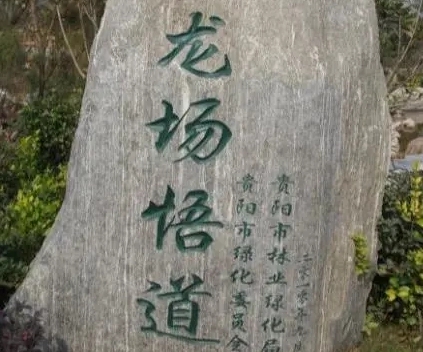 龙场悟道
贵阳市林业绿化局
贵阳市绿化委员会
二零一零年九月